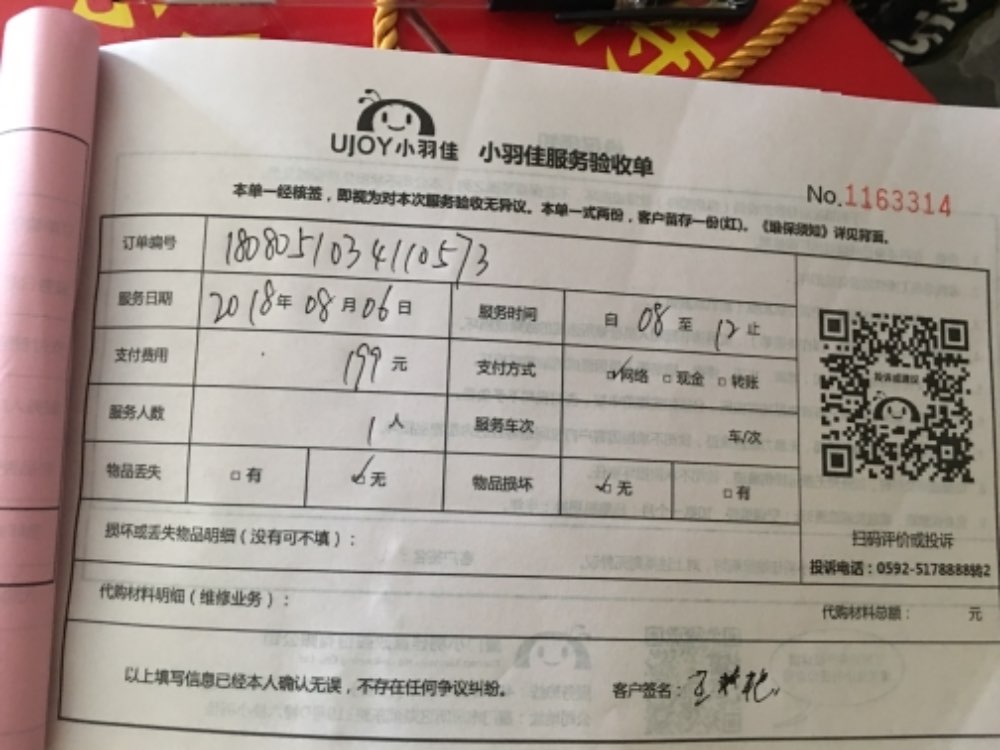 UJOY小羽佳 小羽佳服务验收单
No.1163314
本单一经核签，即视为对本次服务验收无异议。本单一式两份，客户留存一份(红)。《维保须知》详见背面。
订单编号 1808051034110573
服务日期 2018年08月06日 服务时间 自08至12止
支付费用 199元 支付方式 ☑网络 □现金 □转账
服务人数 1人 服务车次 车/次
物品丢失 □有 ☑无 物品损坏 ☑无 □有
投诉或建议
扫码评价或投诉
投诉电话：0592-5178888转2
损坏或丢失物品明细（没有可不填）：
代购材料明细（维修业务）： 代购材料总额： 元
以上填写信息已经本人确认无误，不存在任何争议纠纷。 客户签名：